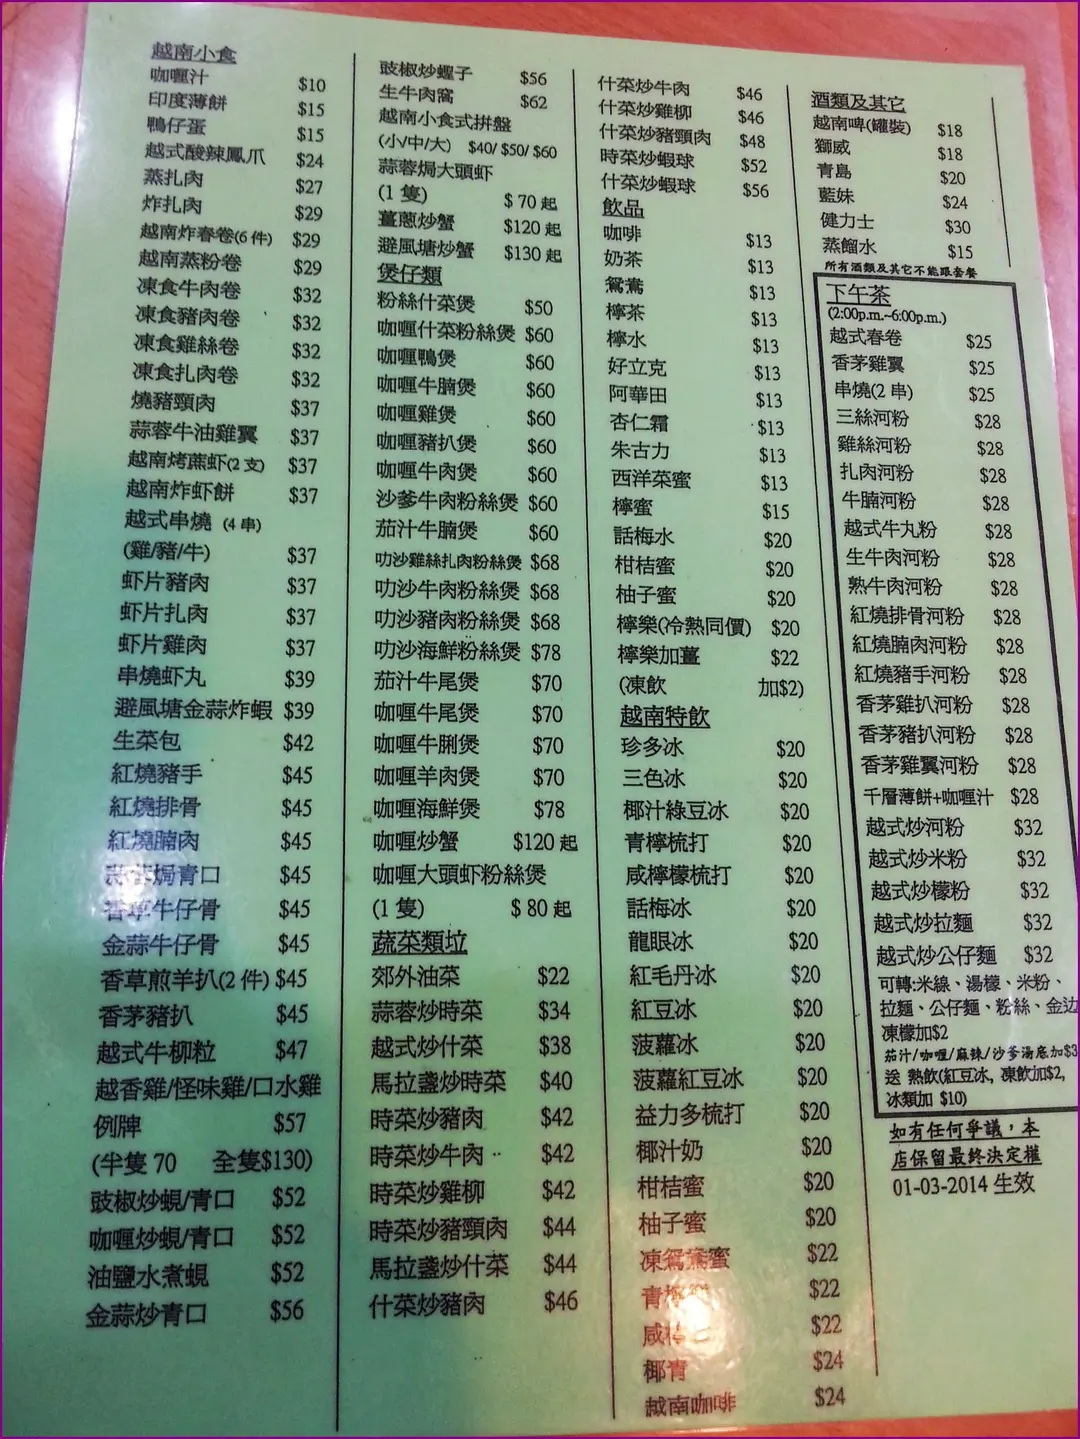 越南小食
咖喱汁 $10
印度薄餅 $15
鴨仔蛋 $15
越式酸辣鳳爪 $24
蒸扎肉 $27
炸扎肉 $29
越南炸春卷(6 件) $29
越南蒸粉卷 $29
凍食牛肉卷 $32
凍食豬肉卷 $32
凍食雞絲卷 $32
凍食扎肉卷 $32
燒豬頸肉 $37
蒜蓉牛油雞翼 $37
越南烤蔗虾(2 支) $37
越南炸虾餅 $37
越式串燒 (4 串)
(雞/豬/牛) $37
虾片豬肉 $37
虾片扎肉 $37
虾片雞肉 $37
串燒虾丸 $39
避風塘金蒜炸蝦 $39
生菜包 $42
紅燒豬手 $45
紅燒排骨 $45
紅燒腩肉 $45
蒜蓉焗青口 $45
香草牛仔骨 $45
金蒜牛仔骨 $45
香草煎羊扒(2 件) $45
香茅豬扒 $45
越式牛柳粒 $47
越香雞/怪味雞/口水雞
例牌 $57
(半隻 70 全隻$130)
豉椒炒蜆/青口 $52
咖喱炒蜆/青口 $52
油鹽水煮蜆 $52
金蒜炒青口 $56
豉椒炒蟶子 $56
生牛肉窩 $62
越南小食式拼盤
(小/中/大) $40/ $50/ $60
蒜蓉焗大頭虾
(1 隻) $ 70 起
薑蔥炒蟹 $120 起
避風塘炒蟹 $130 起
煲仔類
粉絲什菜煲 $50
咖喱什菜粉絲煲 $60
咖喱鴨煲 $60
咖喱牛腩煲 $60
咖喱雞煲 $60
咖喱豬扒煲 $60
咖喱牛肉煲 $60
沙爹牛肉粉絲煲 $60
茄汁牛腩煲 $60
叻沙雞絲扎肉粉絲煲 $68
叻沙牛肉粉絲煲 $68
叻沙豬肉粉絲煲 $68
叻沙海鮮粉絲煲 $78
茄汁牛尾煲 $70
咖喱牛尾煲 $70
咖喱牛脷煲 $70
咖喱羊肉煲 $70
咖喱海鮮煲 $78
咖喱炒蟹 $120 起
咖喱大頭虾粉絲煲
(1 隻) $ 80 起
蔬菜類垃
郊外油菜 $22
蒜蓉炒時菜 $34
越式炒什菜 $38
馬拉盞炒時菜 $40
時菜炒豬肉 $42
時菜炒牛肉 $42
時菜炒雞柳 $42
時菜炒豬頸肉 $44
馬拉盞炒什菜 $44
什菜炒豬肉 $46
什菜炒牛肉 $46
什菜炒雞柳 $46
什菜炒豬頸肉 $48
時菜炒蝦球 $52
什菜炒蝦球 $56
飲品
咖啡 $13
奶茶 $13
鴛鴦 $13
檸茶 $13
檸水 $13
好立克 $13
阿華田 $13
杏仁霜 $13
朱古力 $13
西洋菜蜜 $13
檸蜜 $15
話梅水 $20
柑桔蜜 $20
柚子蜜 $20
檸樂(冷熱同價) $20
檸樂加薑 $22
(凍飲 加$2)
越南特飲
珍多冰 $20
三色冰 $20
椰汁綠豆冰 $20
青檸梳打 $20
咸檸檬梳打 $20
話梅冰 $20
龍眼冰 $20
紅毛丹冰 $20
紅豆冰 $20
菠蘿冰 $20
菠蘿紅豆冰 $20
益力多梳打 $20
椰汁奶 $20
柑桔蜜 $20
柚子蜜 $20
凍鴛鴦蜜 $22
青檸 $22
咸檸 $22
椰青 $24
越南咖啡 $24
酒類及其它
越南啤(罐裝) $18
獅威 $18
青島 $20
藍妹 $24
健力士 $30
蒸餾水 $15
所有酒類及其它不能跟套餐
下午茶
(2:00p.m.~6:00p.m.)
越式春卷 $25
香茅雞翼 $25
串燒(2 串) $25
三絲河粉 $28
雞絲河粉 $28
扎肉河粉 $28
牛腩河粉 $28
越式牛丸粉 $28
生牛肉河粉 $28
熟牛肉河粉 $28
紅燒排骨河粉 $28
紅燒腩肉河粉 $28
紅燒豬手河粉 $28
香茅雞扒河粉 $28
香茅豬扒河粉 $28
香茅雞翼河粉 $28
千層薄餅+咖喱汁 $28
越式炒河粉 $32
越式炒米粉 $32
越式炒檬粉 $32
越式炒拉麵 $32
越式炒公仔麵 $32
可轉:米線、湯檬、米粉、
拉麵、公仔麵、粉絲、金边
凍檬加$2
茄汁/咖喱/麻辣/沙爹湯底加$3
送 熱飲(紅豆冰, 凍飲加$2,
冰類加 $10)
如有任何爭議，本
店保留最終決定權
01-03-2014 生效